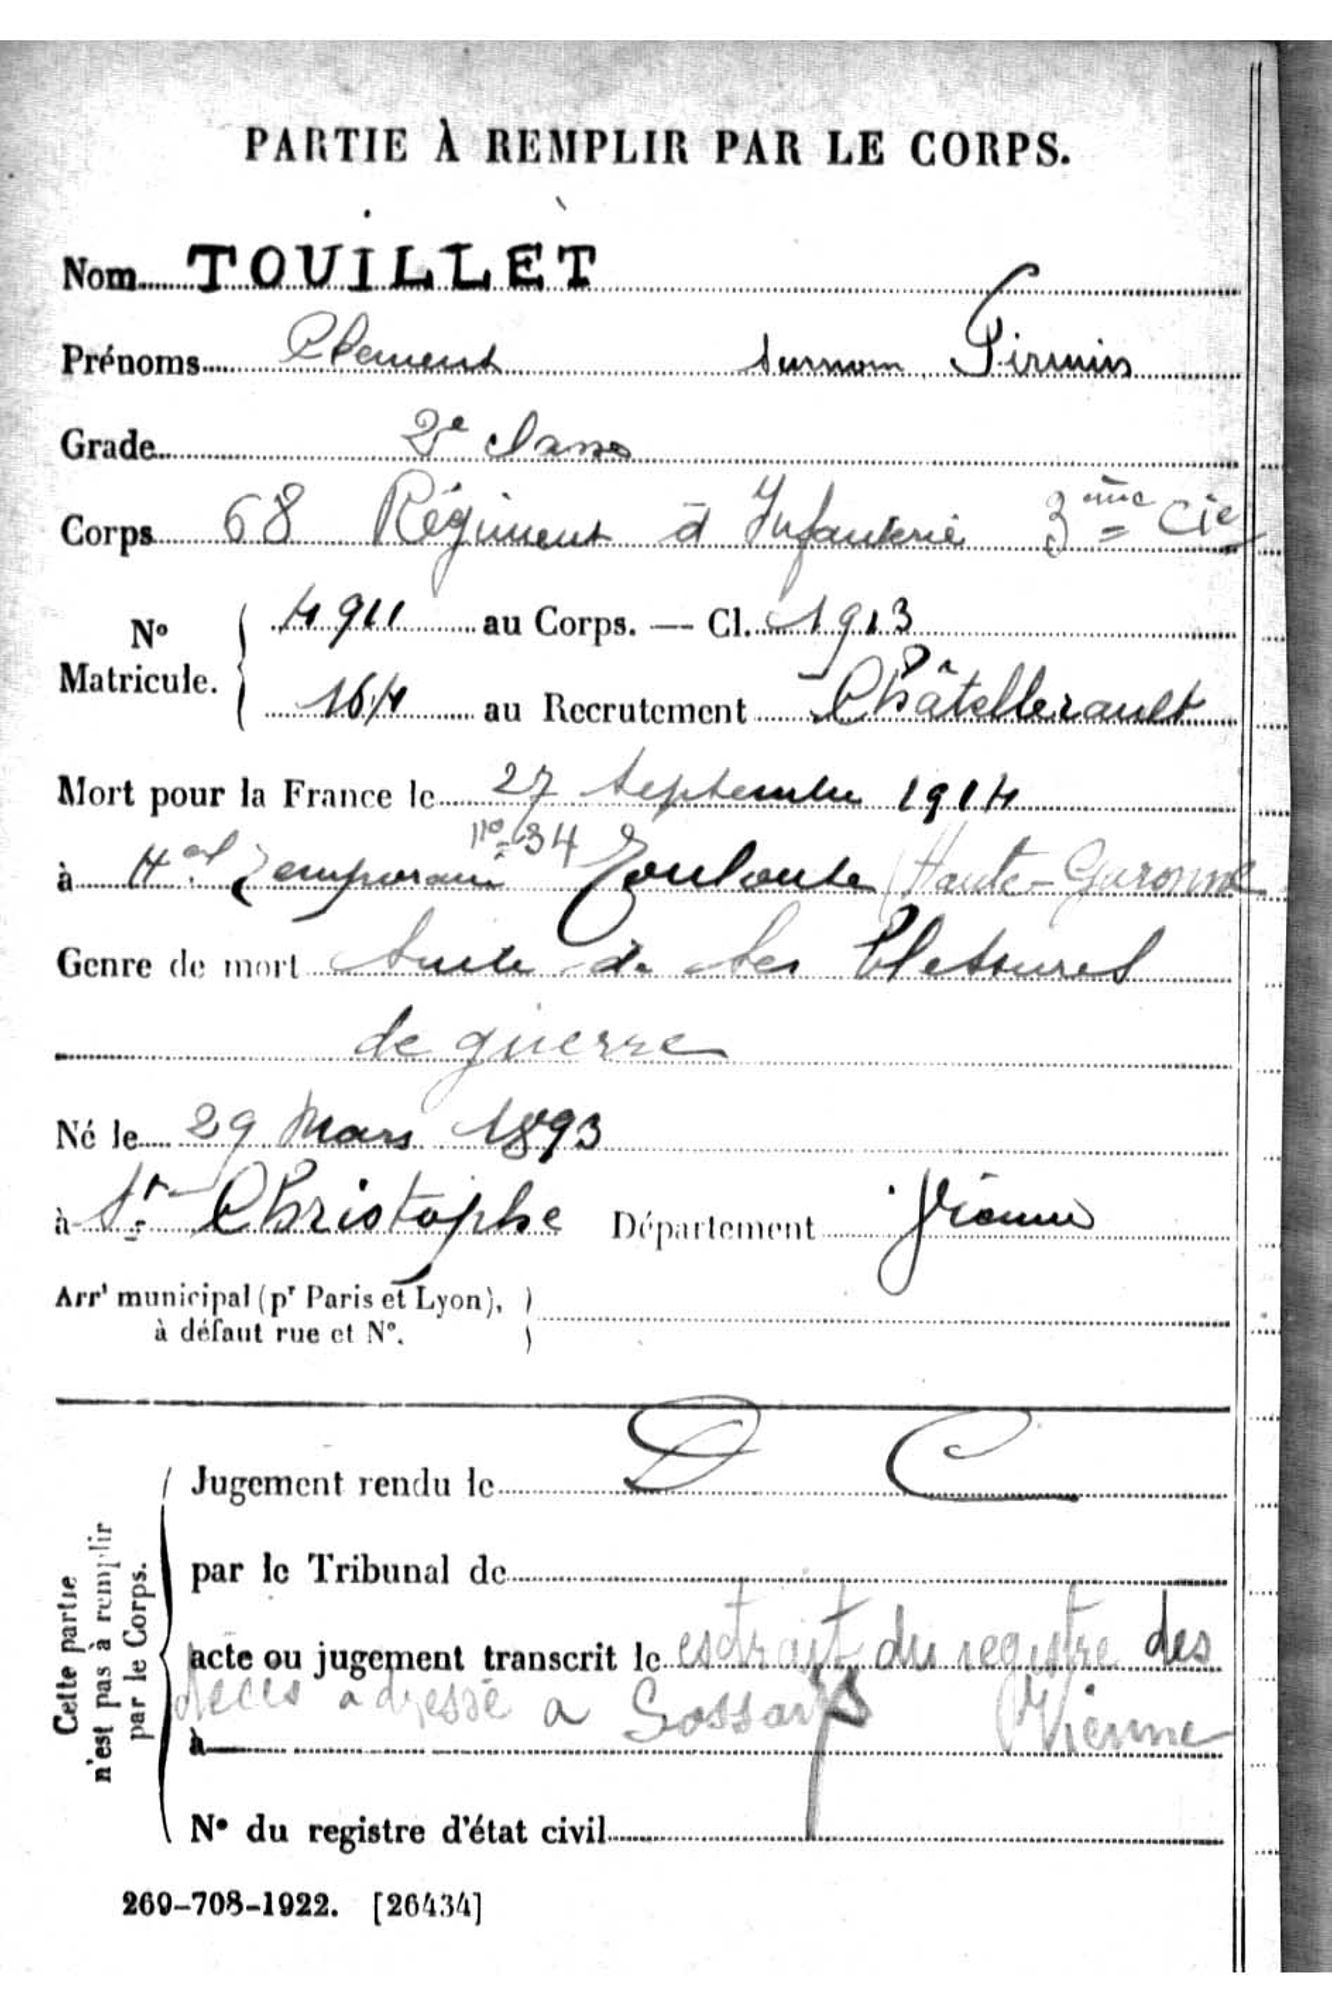 PARTIE À REMPLIR PAR LE CORPS.
Nom TOUILLET
Prénoms Clement surnom Firmin
Grade 2e classe
Corps 68 Régiment d'Infanterie 3ème Cie
No Matricule. 4911 au Corps. — Cl. 1913
164 au Recrutement Châtellerault
Mort pour la France le 27 Septembre 1914
no 34
à Hal Temporaire Toulouse (Haute-Garonne
Genre de mort Suite de ses blessures
de guerre
Né le 29 Mars 1893
à St Christophe Département Vienne
Arrt municipal (pr Paris et Lyon),
à défaut rue et No.
D C
Jugement rendu le
par le Tribunal de
acte ou jugement transcrit le extrait du registre des
décès adressé a Sossays Vienne
à
No du registre d'état civil
Cette partie
n'est pas à remplir
par le Corps.
269-708-1922. [26434]